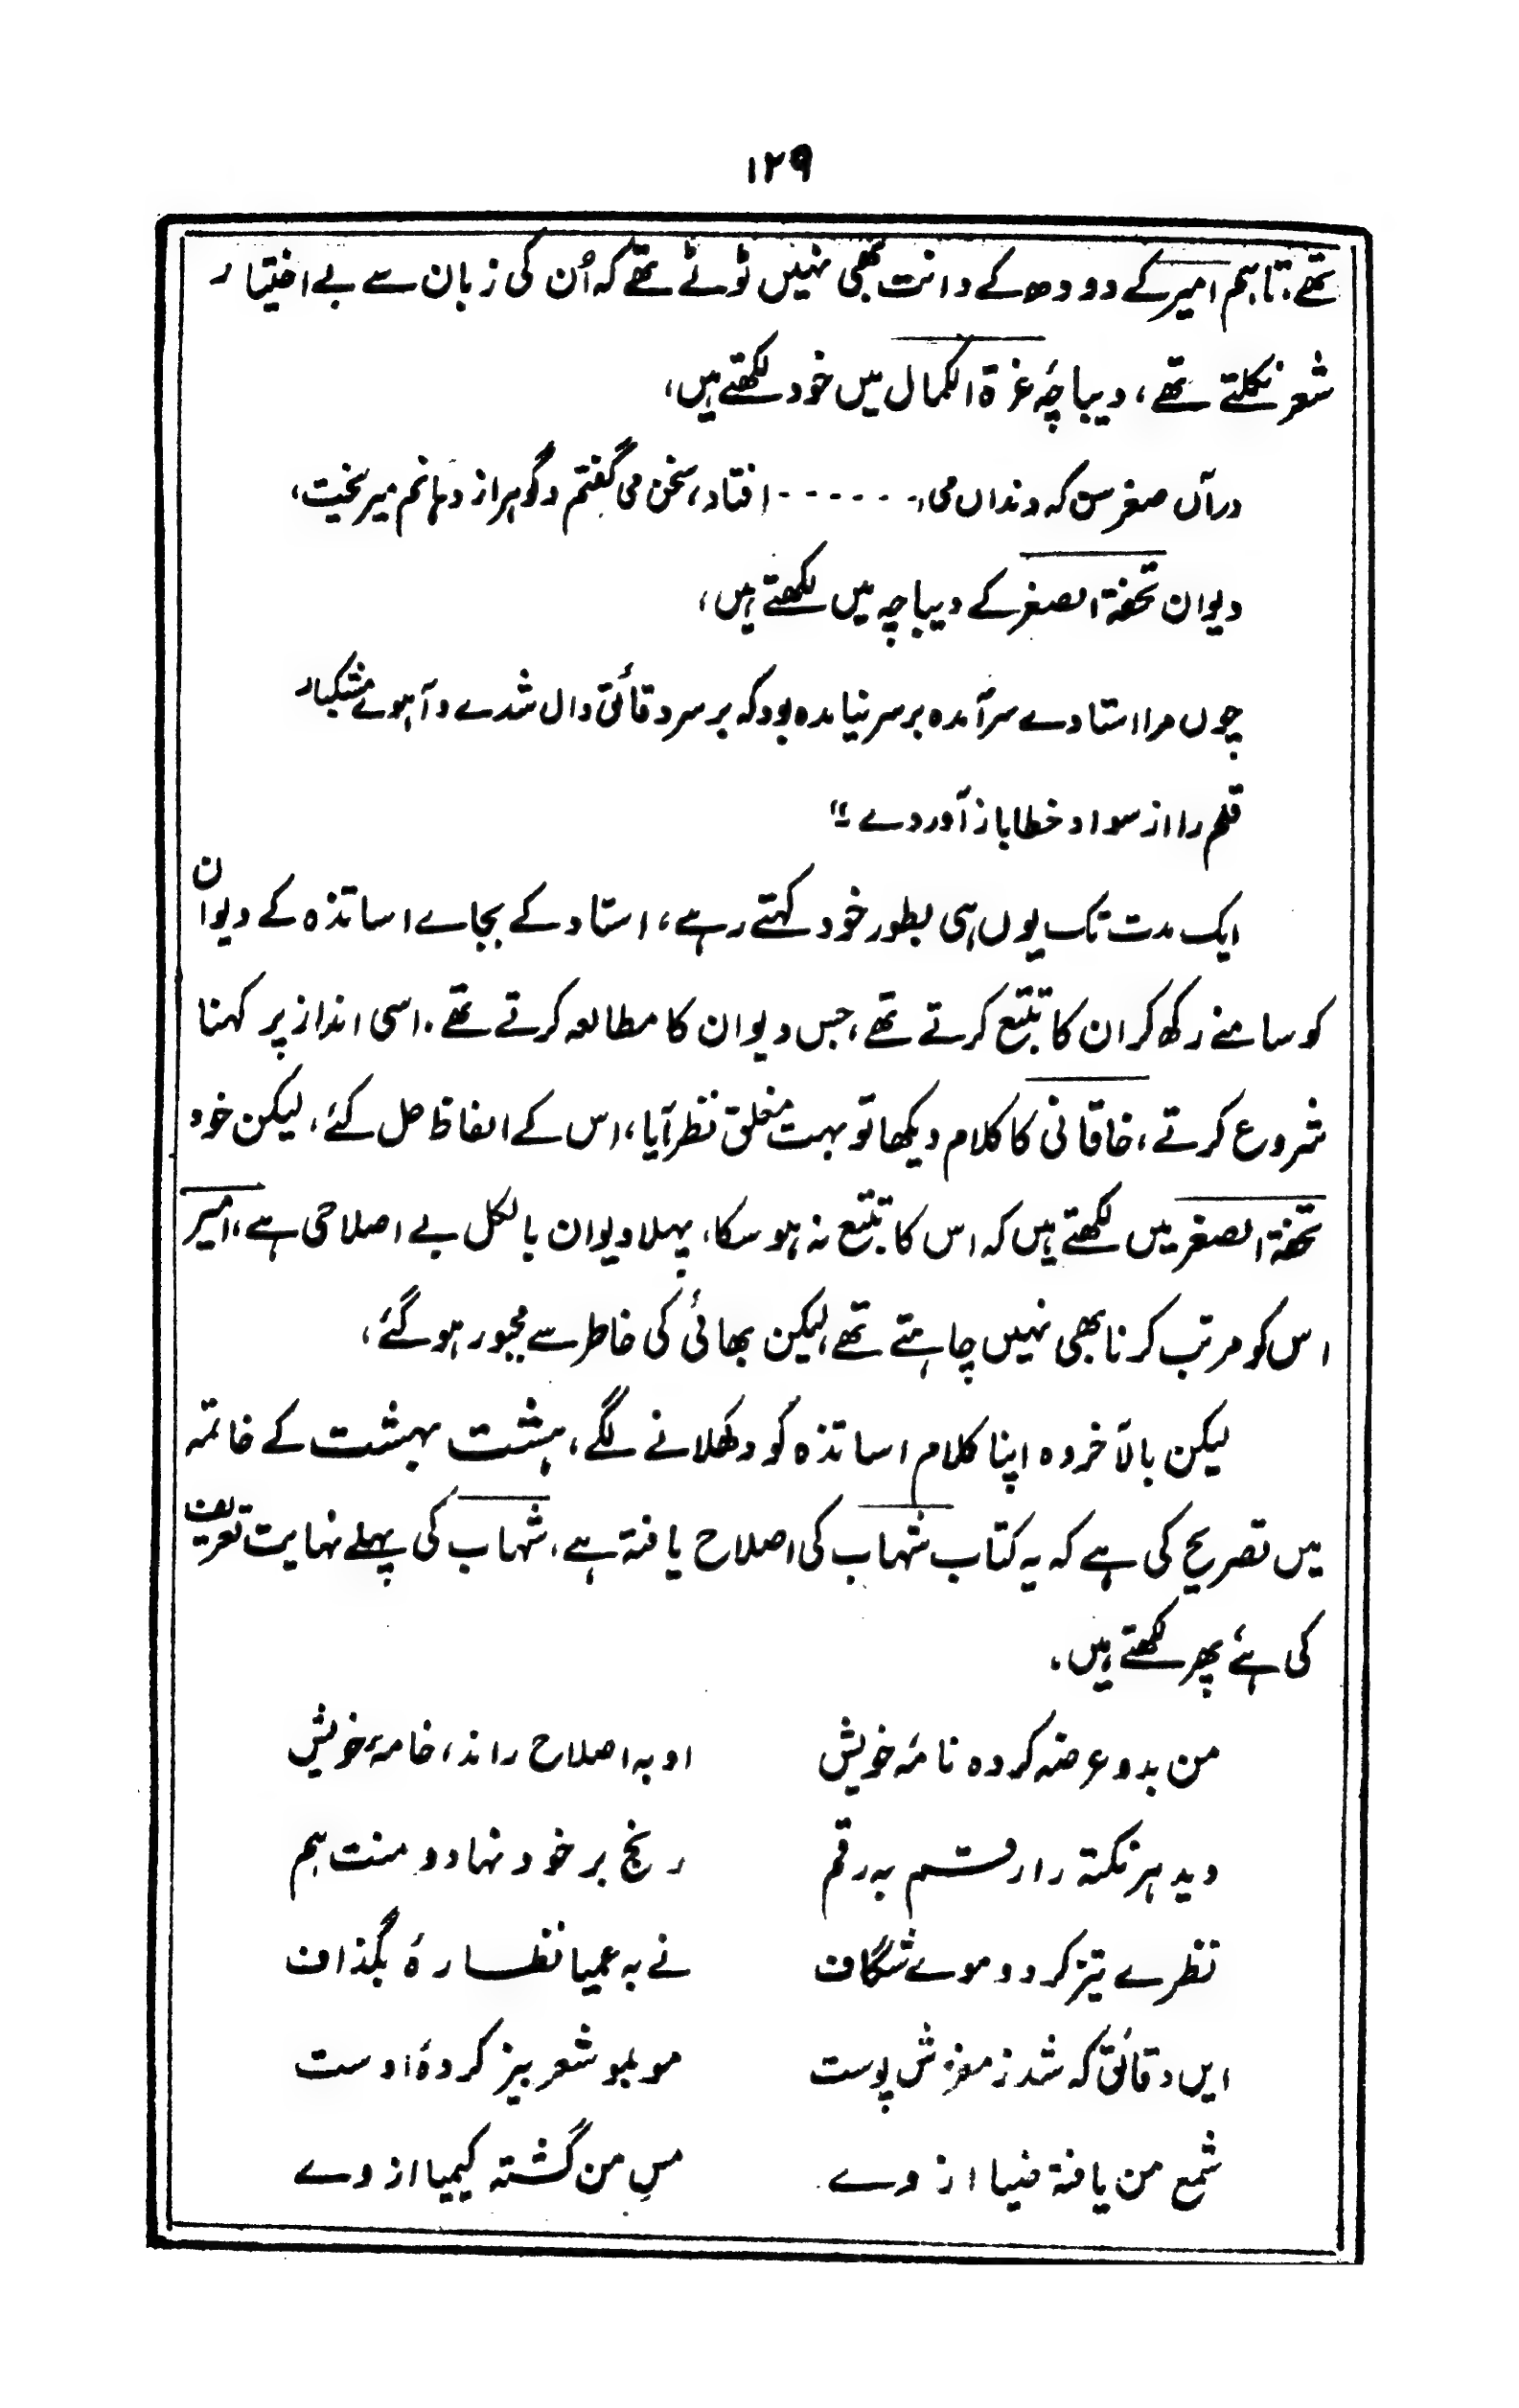 ۱۲۹
تھے، تاہم امیر کے دودھ کے دانت بھی نہیں ٹوٹے تھے کہ اُن کی زبان سے بے اختیار
شعر نکلتے تھے، دیباچۂ غرۃ الکمال میں خود لکھتے ہیں،
درآں صغرسن کہ دنداں می۔ - - - - - - افتاد، سخن می گفتم و گوہر از دہانم میریخت،
دیوان تحفۃ الصغر کے دیباچہ میں لکھتے ہیں،
چوں مرا استادے سرآمدہ برسر نیامدہ بود کہ برسر دقائق دال شدے و آہوئے مشکبار
قلم را از سواد خطا باز آوردے ۔"
ایک مدت تک یوں ہی بطور خود کہتے رہے، استاد کے بجاے اساتذہ کے دیوان
کو سامنے رکھ کر ان کا تتبع کرتے تھے، جس دیوان کا مطالعہ کرتے تھے۔ اسی انداز پر کہنا
شروع کرتے، خاقانی کا کلام دیکھا تو بہت مغلق نظر آیا، اس کے الفاظ حل کئے، لیکن خود
تحفۃ الصغر میں لکھتے ہیں کہ اس کا تتبع نہ ہو سکا، پہلا دیوان بالکل بے اصلاحی ہے، امیر
اس کو مرتب کرنا بھی نہیں چاہتے تھے، لیکن بھائی کی خاطر سے مجبور ہو گئے،
لیکن بالآخر وہ اپنا کلام اساتذہ کو دکھلانے لگے، ہشت بہشت کے خاتمہ
میں تصریح کی ہے کہ یہ کتاب شہاب کی اصلاح یافتہ ہے، شہاب کی پہلے نہایت تعریف
کی ہے پھر لکھتے ہیں۔
من بدو عرضہ کردہ نامۂ خویش او بہ اصلاح راند، خامۂ خویش
دید ہر نکتہ را رقم بہ رقم رنج بر خود نہاد و منت ہم
نظرے تیز کرد و موے شگاف نے بہ عمیا نظارۂ بگذاف
ایں دقائق کہ شد ز مغزش پوست موبمو شعر بیز کردۂ اوست
شمع من یافتہ ضیا از وے مسِ من گشتہ کیمیا از وے